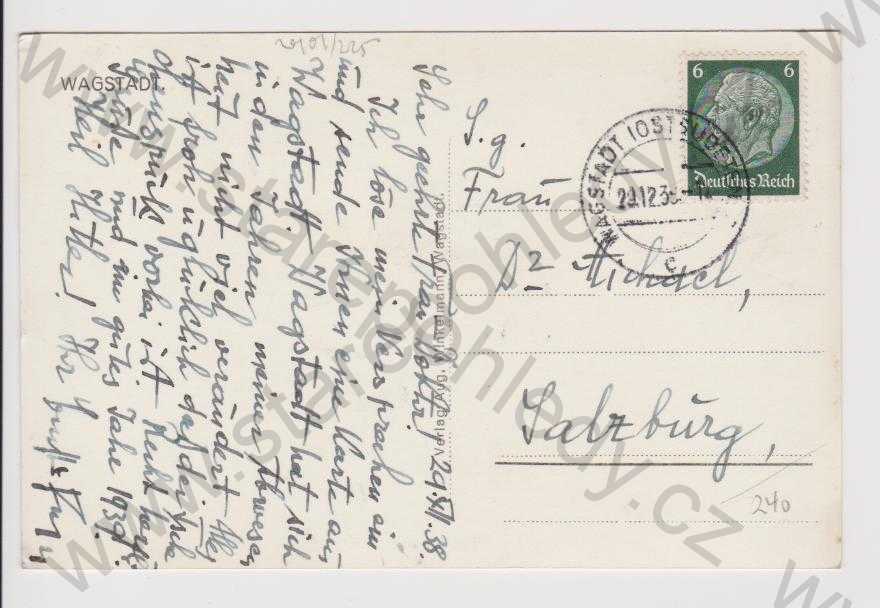 20101/225
WAGSTADT.
Sehr geehrte Frau Doktor! 29.XII.38.
Ich löse mein Versprechen ein
und sende Ihnen eine Karte aus
Wagstadt. Wagstadt hat sich
in den Jahren meiner Abwesen
heit nicht viel verändert. Alles
ist froh u. glücklich daß der
vorbei ist. Recht herzl.
Grüße und ein gutes Jahr 1939.
Heil Hitler! Ihr
Verlag Aug. Winkelmann, Wagstadt.
6 6
Deutsches Reich
WAGSTADT (OSTSUDETENL)
29.12.38
c
S. g.
Frau
Dr Michael,
Salzburg,
240
www.starepohledy.cz
www.starepohledy.cz